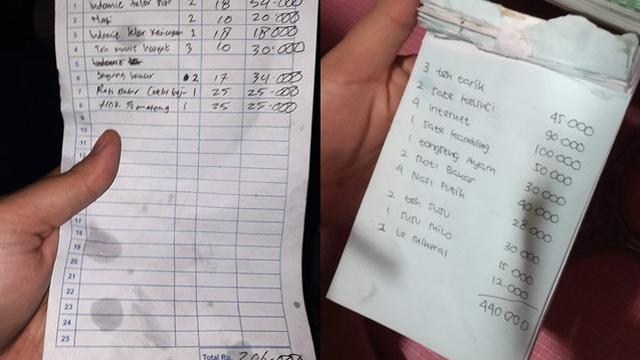 1 Indomie telor 2 18 54.000
2 Nasi 2 10 20.000
3 Indomie 1 18 18.000
4 Teh manis hangat 3 10 30.000
5 Indomie
6 bakar 2 17 34.000
7 Roti Bakar 1 25 25.000
8 1 25 25.000
9
10
11
12
17
18
19
20
21
22
23
24
25
Total Rp. 206.000
3 teh tarik 45 000
2 Sate 90 000
4 Internet 100 000
1 Sate kambing 50 000
1 Tongseng Ayam 30 000
2 Roti Bakar 40 000
4 Nasi Putih 28 000
2 teh susu 30 000
1 susu milo 15 000
2 Le Mineral 12.000
440 000